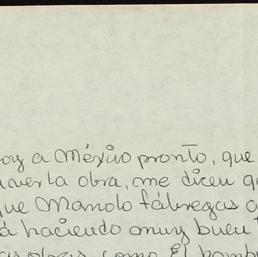 oy a México pronto, que
a ver la obra, me dicen q
que Manolo fábregas a
á haciendo muy buen t
as obras como El homb